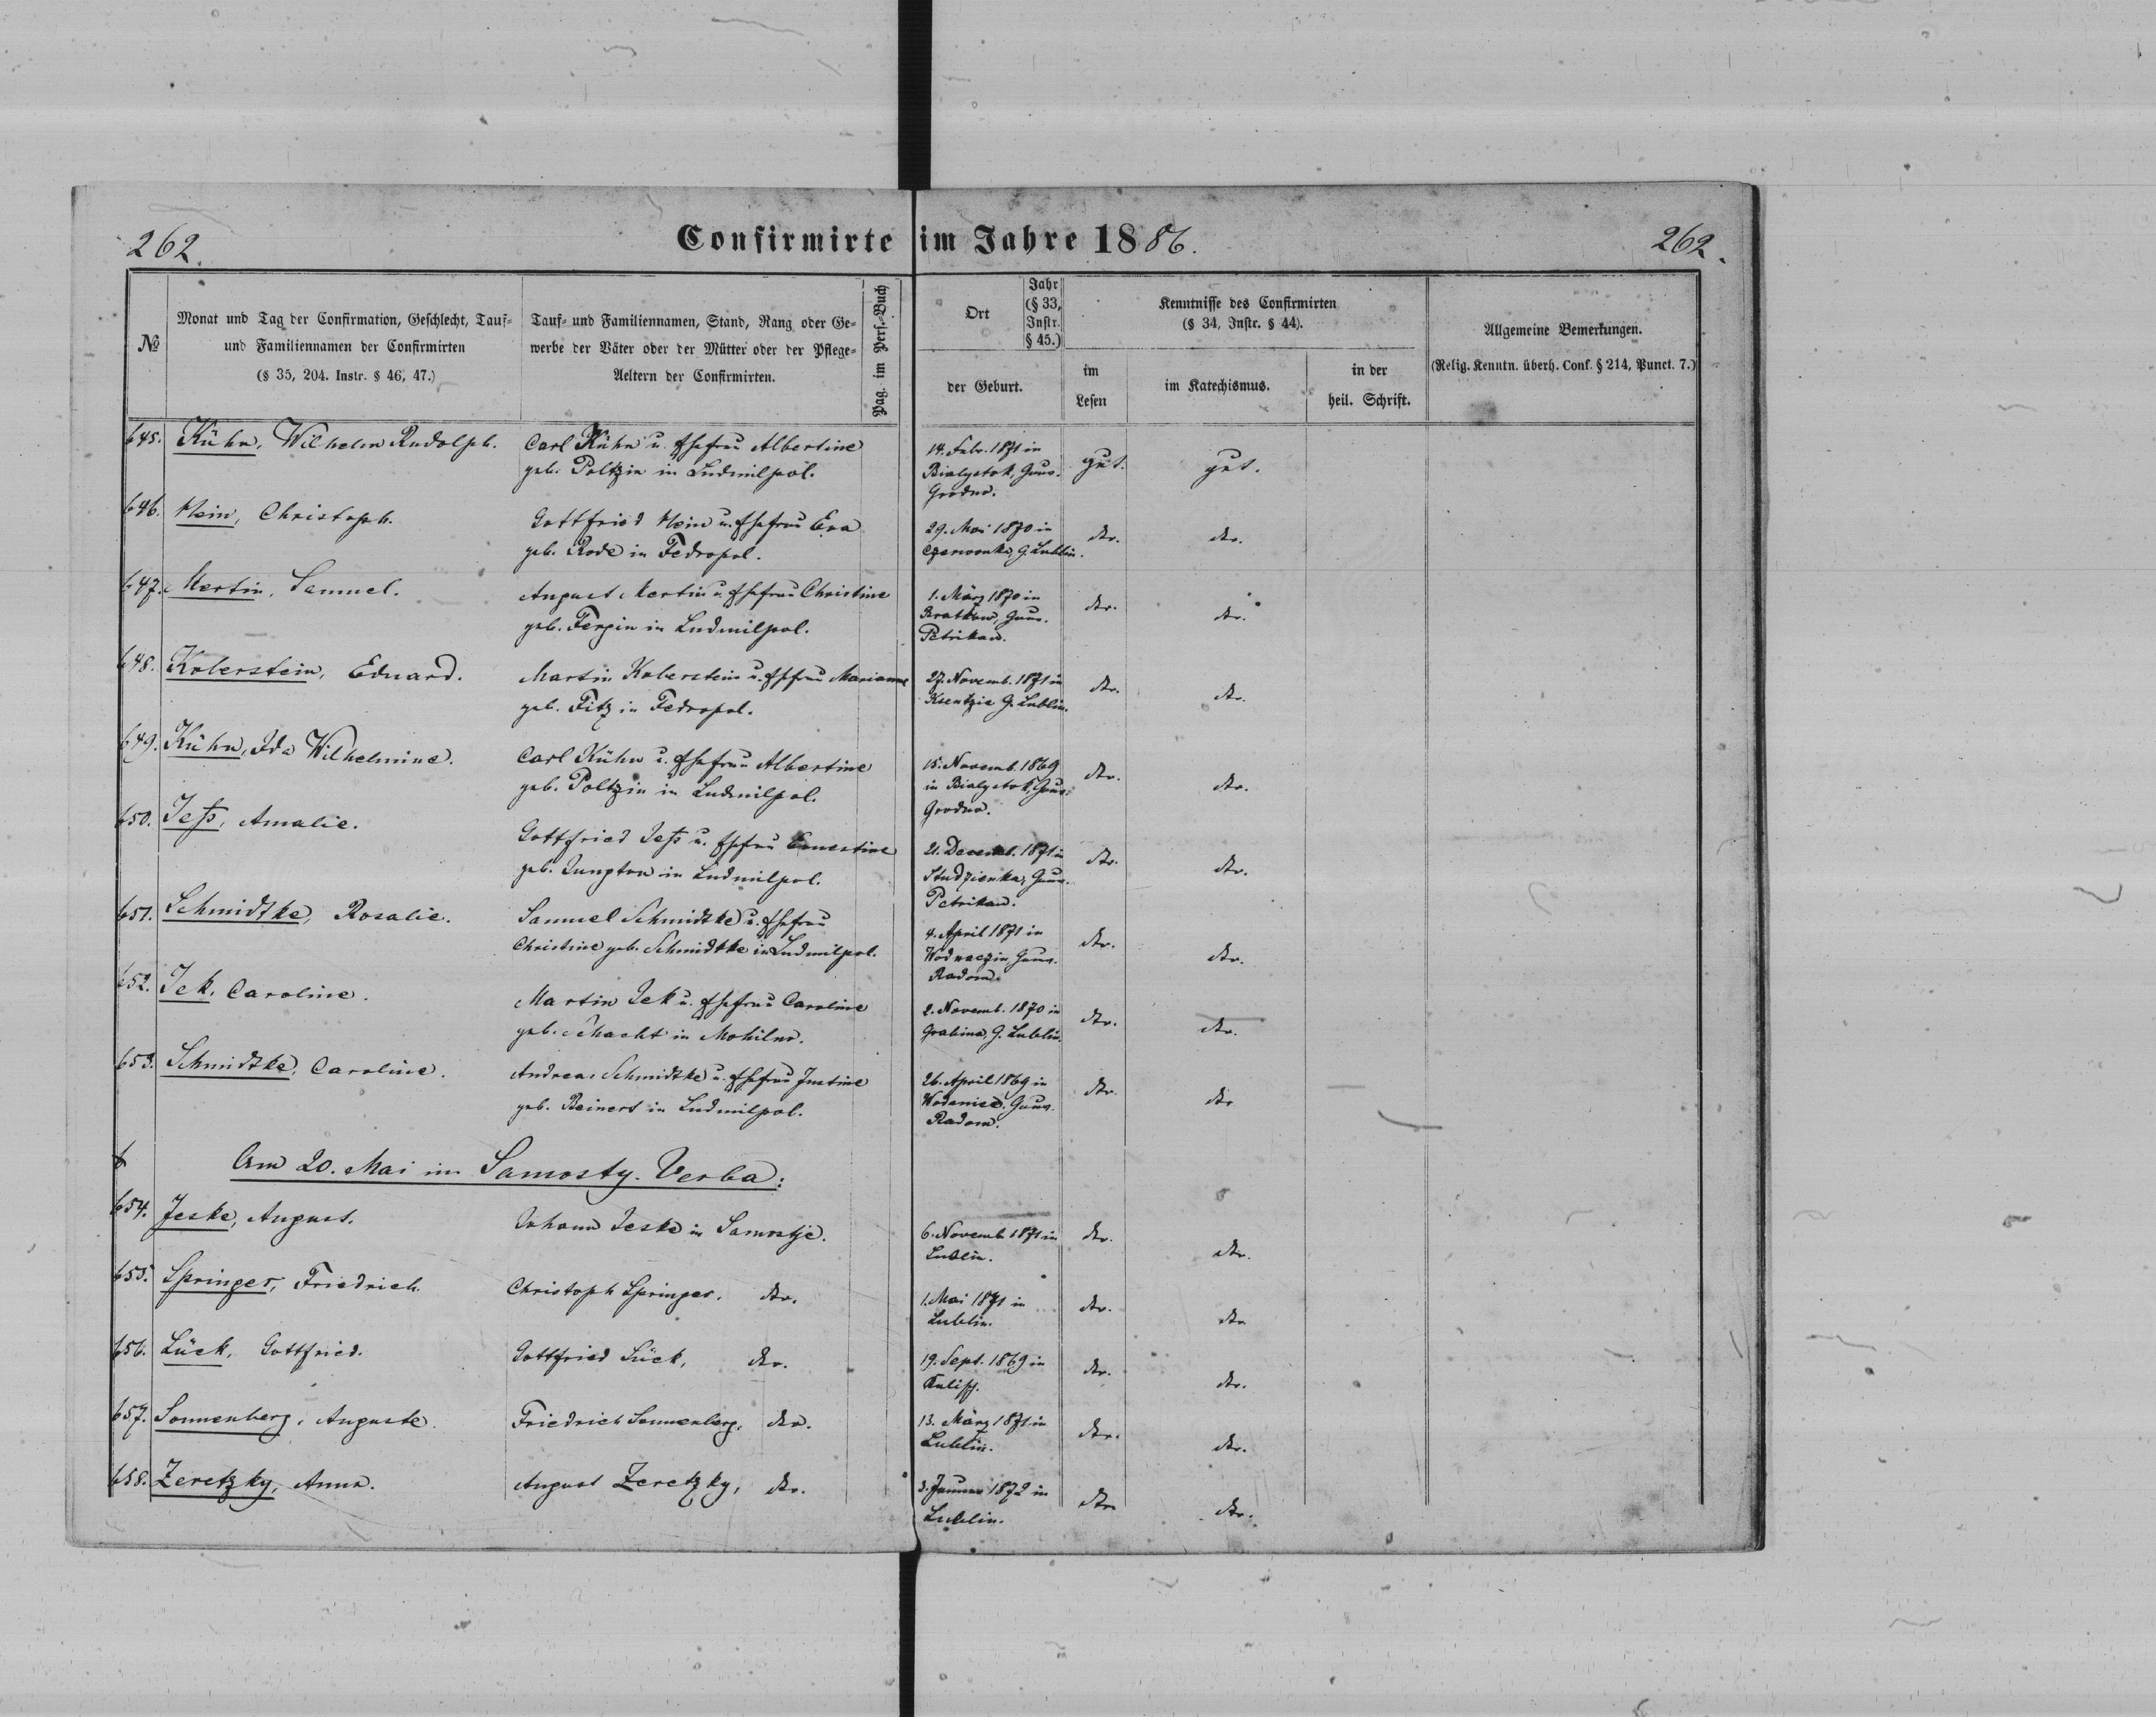 262.
Confirmirte im Jahre 1886.
262.
№
Monat und Tag der Confirmation, Geschlecht, Tauf-
und Familiennamen der Confirmirten
(§ 35, 204. Instr. § 46, 47.)
Tauf- und Familiennamen, Stand, Rang oder Ge-
werbe der Väter oder der Mütter oder der Pflege-
Aeltern der Confirmirten.
Pag. im Pers.-Buch
Ort
Jahr
(§ 33,
Instr.
§ 45.)
der Geburt.
Kenntnisse des Confirmirten
(§ 34, Instr. § 44).
im
Lesen
im Katechismus.
in der
heil. Schrift.
Allgemeine Bemerkungen.
(Relig. Kenntn. überh. Conf. § 214, Punct. 7.)
645. Kühn, Wilhelm Rudolph.
Carl Kühn u. Ehefrau Albertine
geb. Poltzin in Ludmilpol.
14. Febr. 1871 in
Bialystok, Gouv.
Grodno.
gut.
gut.
646. Klein, Christoph.
Gottfried Klein u. Ehefrau Eva
geb. Rode in Fedropol.
29. Mai 1870 in
Czerwonka, G. Lublin.
dto.
dto.
647. Mertin, Samuel.
August Mertin u. Ehefrau Christine
geb. in Ludmilpol.
1. März 1870 in
Gouv.
Petrikau.
dto.
dto.
648. Koberstein, Eduard.
Martin Koberstein u. Ehefrau Marianne
geb. Fitz in Fedropol.
27. Novemb. 1871 in
G. Lublin.
dto.
dto.
649. Kühn, Ida Wilhelmine.
Carl Kühn u. Ehefrau Albertine
geb. Poltzin in Ludmilpol.
15. Novemb. 1869
in Bialystok, Gouv.
Grodno.
dto.
dto.
650. Jeß, Amalie.
Gottfried Jeß u. Ehefrau Ernestine
geb. in Ludmilpol.
21. Decemb. 1871 in
Studzienka, Gouv.
Petrikau.
dto.
dto.
651. Schmidtke, Rosalie.
Samuel Schmidtke u. Ehefrau
Christine geb. Schmidtke in Ludmilpol.
4. April 1871 in
Gouv.
Radom.
dto.
dto.
652. Jek, Caroline.
Martin Jek u. Ehefrau Caroline
geb. Schacht in Mohilno.
2. Novemb. 1870 in
Grabina, G. Lublin.
dto.
dto.
653. Schmidtke, Caroline.
Andreas Schmidtke u. Ehefrau Justine
geb. Reinert in Ludmilpol.
26. April 1869 in
Gouv.
Radom.
dto.
dto
Am 20. Mai in Samosty-Verba:
654. Jeske, August.
Johann Jeske in Samostje.
6. Novemb 1871 in
Lublin.
dto.
dto.
655. Springer, Friedrich.
Christoph Springer, dto.
1. Mai 1871 in
Lublin.
dto.
dto
656. Lück, Gottfried.
Gottfried Lück, dto.
19. Sept. 1869 in
Kalisch.
dto.
dto.
657. Sonnenberg, Auguste.
Friedrich Sonnenberg, dto.
13. März 1871 in
Lublin.
dto.
dto.
658. Zeretzky, Anna.
August Zeretzky, dto.
3. Januar 1872 in
Lublin.
dto
dto.